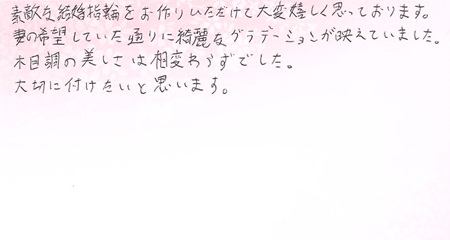 素敵な結婚指輪をお作りいただけて大変嬉しく思っております。
妻の希望していた通りに綺麗なグラデーションが映えていました。
木目調の美しさは相変わらずでした。
大切に付けたいと思います。